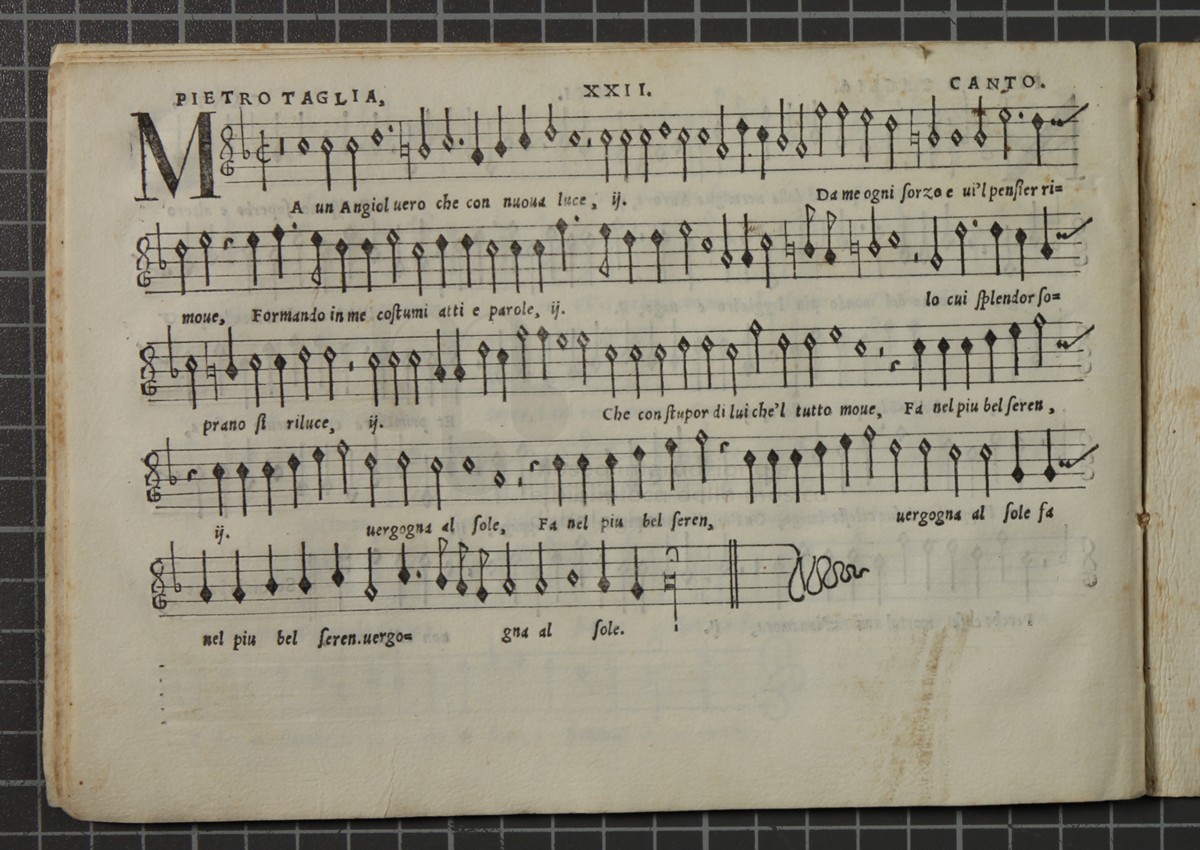 PIETRO TAGLIA, XXII. CANTO.
MA un Angiol uero che con nuoua luce, ij. Da me ogni ſorza e ui'l penſier ri=
moue, Formando in me coſtumi atti e parole, ij. lo cui ſplendor ſo=
prano ſi riluce, ij. Che con ſtupor di lui che'l tutto moue, Fa nel piu bel ſeren,
ij. uergogna al ſole, Fa nel piu bel ſeren, uergogna al ſole fa
nel piu bel ſeren. uergo= gna al ſole.